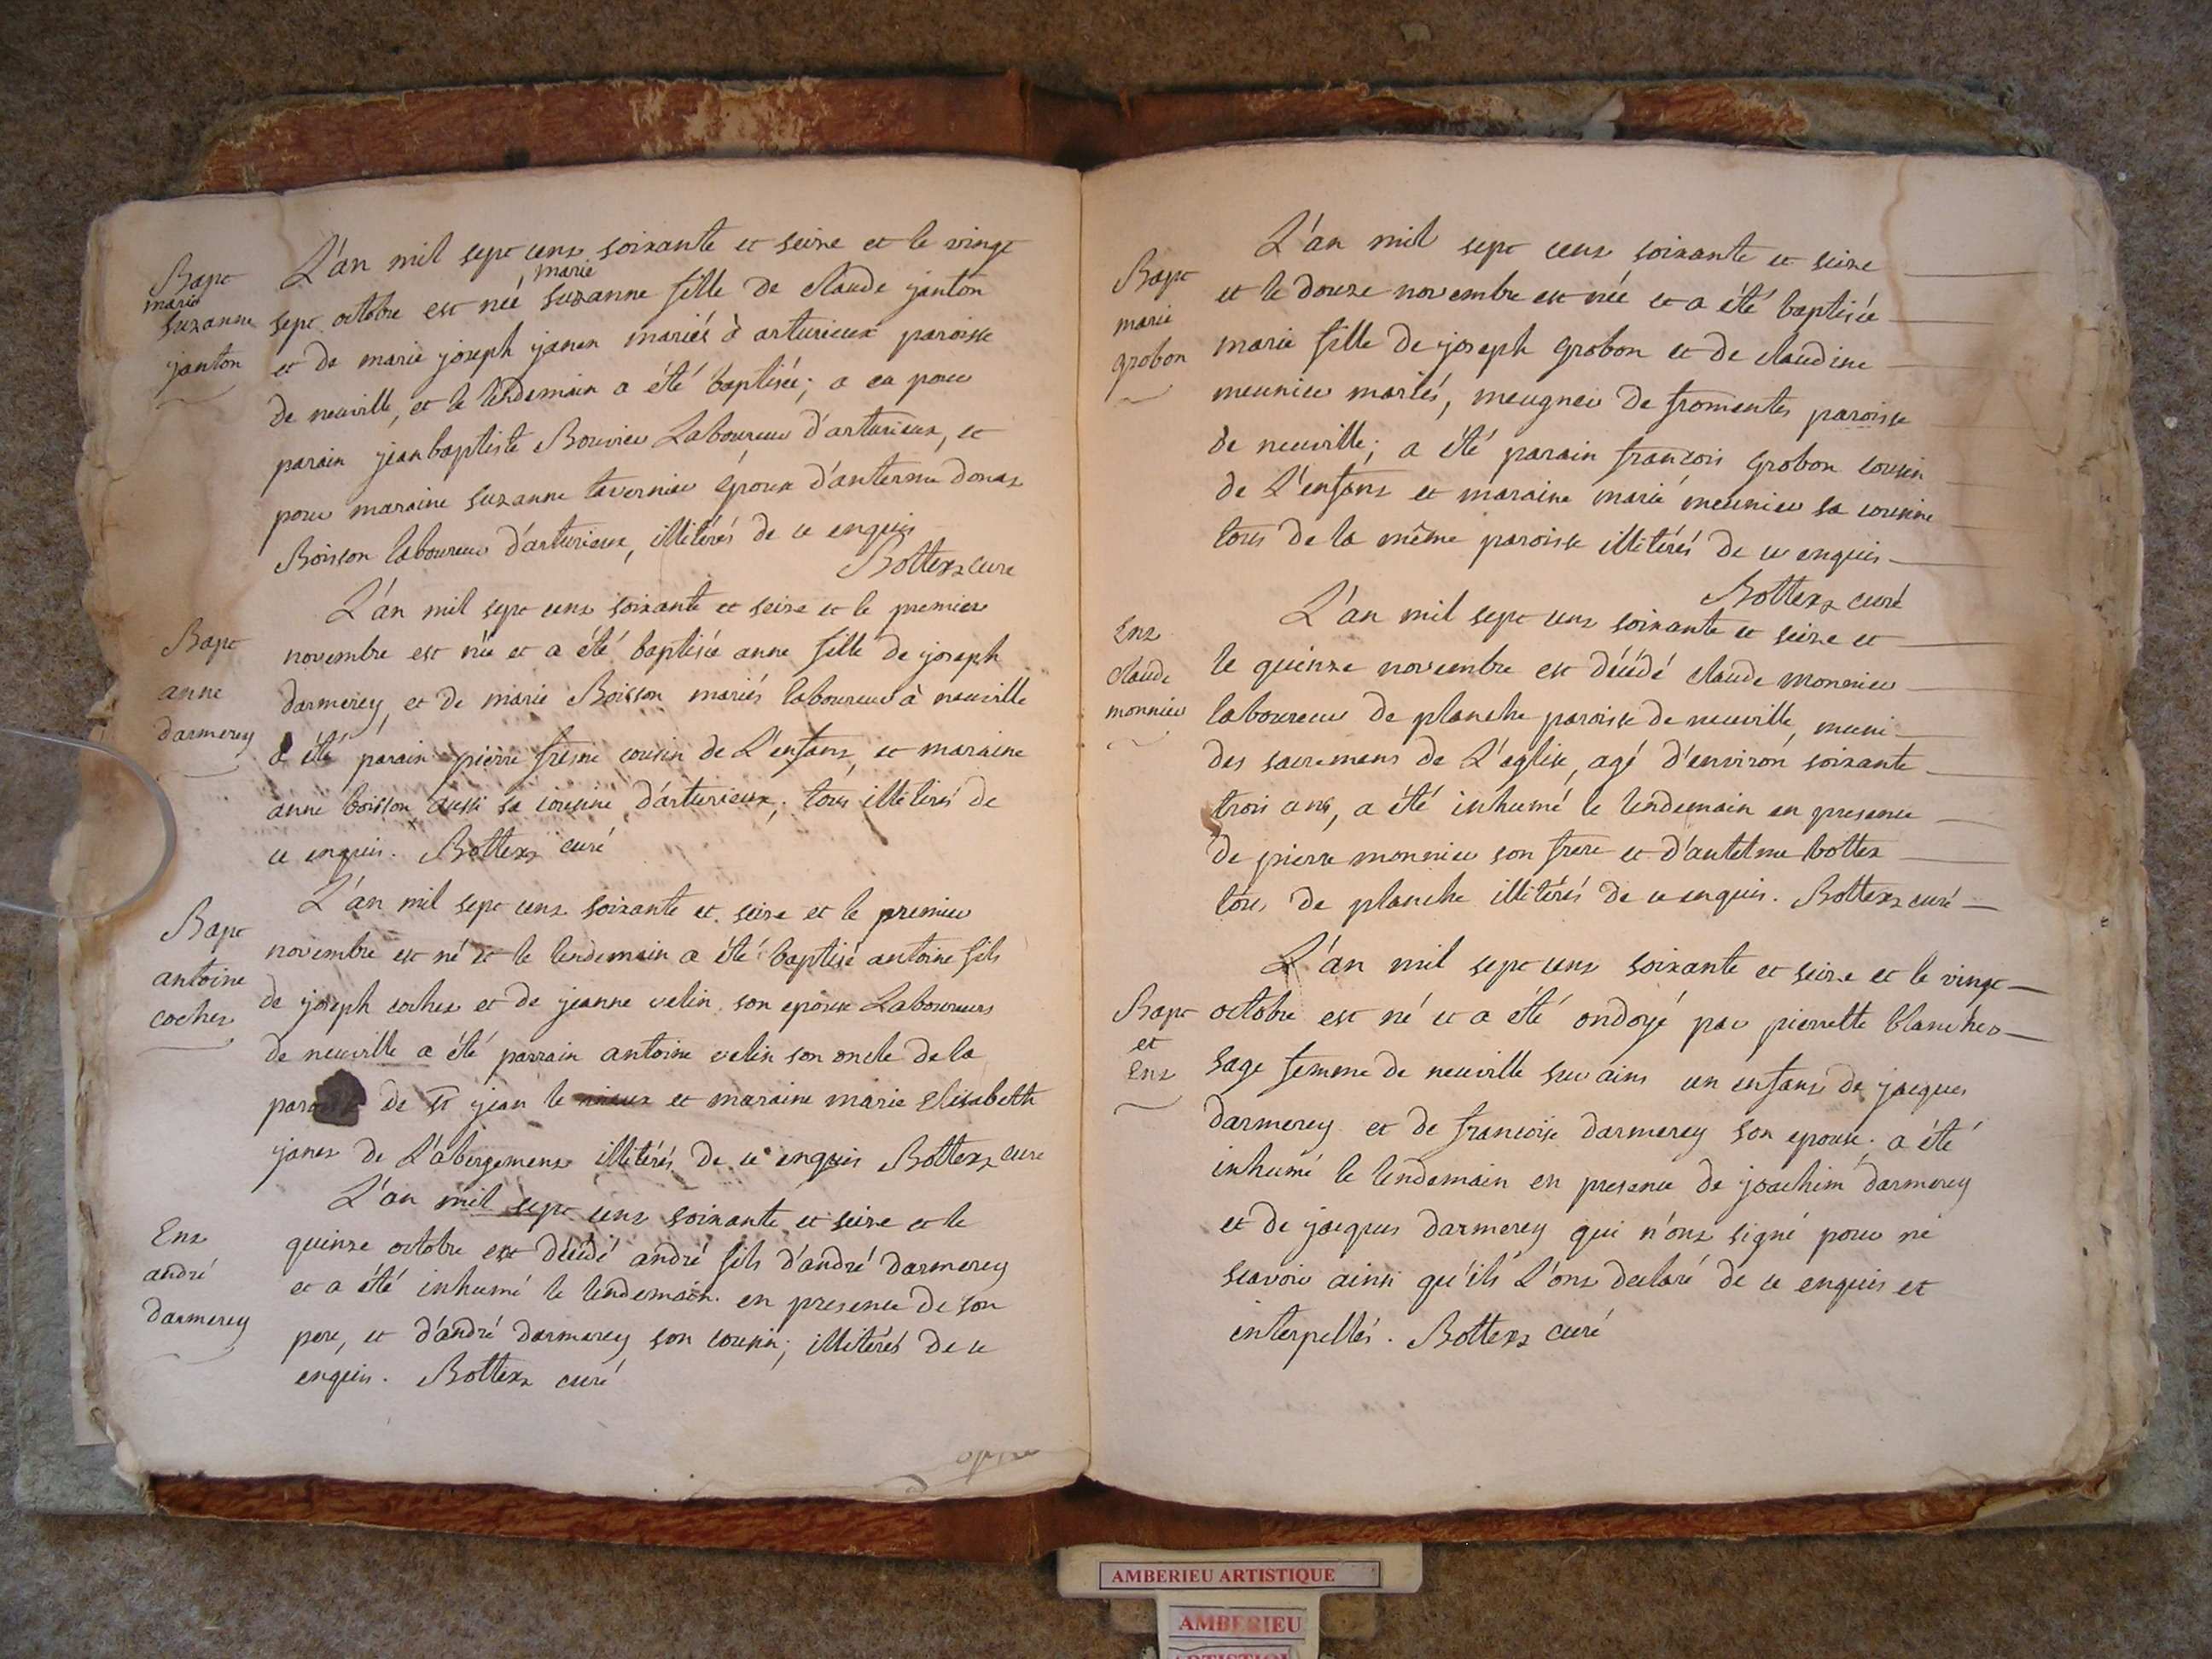 Bapt
marie
suzanne
janton
L'an mil sept cens soixante et seize et le vingt
sept octobre est néé marie suzanne fille de claude janton
et de marie joseph janen mariés à arturieux paroisse
de neuville, et le lendemain a été baptisée; a eu pour
parain jean baptiste Bouvier Laboureur d'arturieux, et
pour maraine suzanne tavernier épouse d'antelme donat
Boisson laboureur d'arturieux, illitérés de ce enquis
Bottex curé
Bapt
anne
darmerey
L'an mil sept cens soixante et seize et le premier
novembre est née et a été baptisée anne fille de joseph
darmerey, et de marie Boisson mariés laboureur à neuville
a été parain pierre cousin de L'enfant, et maraine
anne boisson aussi sa cousine d'arturieux; tous illitérés de
ce enquis. Bottex curé
Bapt
antoine
cochet
L'an mil sept cens soixante et seize et le premier
novembre est né et le lendemain a été baptisé antoine fils
de joseph cochet et de jeanne velin son epouse Laboureurs
de neuville a été parrain antoine velin son oncle de la
paroisse de st jean le vieux et maraine marie Elisabeth
janet de L'abergement illitérés de ce enquis Bottex curé
Ent
andré
darmerey
L'an mil sept cens soixante et seize et le
quinze octobre est décédé andré fils d'andré darmerey
et a été inhumé le lendemain en presence de son
pere, et d'andré darmerey son cousin; illitérés de ce
enquis. Bottex curé
Bapt
marie
grobon
L'an mil sept cens soixante et seize
et le douze novembre est née et a été baptisée
marie fille de joseph Grobon et de claudine
meunier mariés, meugnier de fromentes paroisse
de neuville; a été parain françois Grobon cousin
de L'enfant et maraine marie meunier sa cousine
tous de la même paroisse illitérés de ce enquis
Bottex curé
Ent
claude
monnier
L'an mil sept cens soixante et seize et
le quinze novembre est décédé claude monnier
laboureur de planche paroisse de neuville, muni
des sacremens de L'eglise, agé d'environ soixante
trois ans, a été inhumé le lendemain en presence
de pierre monnier son frere et d'antelme bottex
tous de planche illitérés de ce enquis. Bottex curé
Bapt
et
Ent
L'an mil sept cens soixante et seize et le vingt
octobre est né et a été ondoyé par pierrette blanchet
sage femme de neuville sur ains un enfant de jacques
darmerey et de francoise darmerey son epouse. a été
inhumé le lendemain en presence de joachim darmerey
et de jacques darmerey qui n'ont signé pour ne
scavoir ainsi qu'ils L'ont declaré de ce enquis et
interpellés. Bottex curé
AMBERIEU ARTISTIQUE
AMBERIEU
ARTISTIQUE